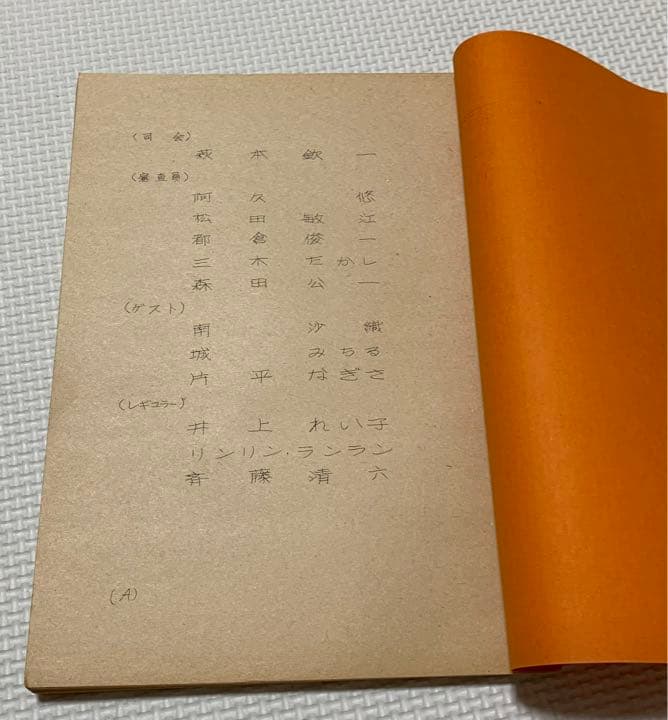 (司会)
萩本欽一
(審査員)
阿久悠
松田敏江
都倉俊一
三木たかし
森田公一
(ゲスト)
南沙織
城みちる
片平なぎさ
(レギュラー)
井上れい子
リンリン・ランラン
斉藤清六
(A)